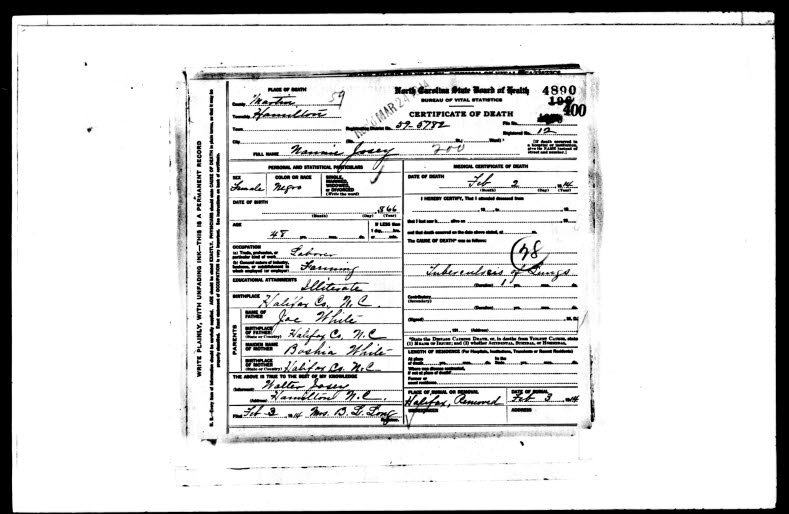 PLACE OF DEATH
County Martin 59
Township Hamilton
Town
City
North Carolina State Board of Health 4890
BUREAU OF VITAL STATISTICS
CERTIFICATE OF DEATH 400
MAR 24
Registration District No. 59-5782 File No.
Registered No. 12
(No. St.; Ward)
[If death occurred in a hospital or institution, give its NAME instead of street and number.]
FULL NAME Nannie Josey 200
PERSONAL AND STATISTICAL PARTICULARS
SEX Female
COLOR OR RACE Negro
SINGLE, MARRIED, WIDOWED, or DIVORCED (Write the word)
DATE OF BIRTH 866
(Month) (Day) (Year)
AGE 48 yrs. mos. ds.
If LESS than 1 day, hrs. or min.
OCCUPATION
(a) Trade, profession, or particular kind of work Laborer
(b) General nature of industry, business, or establishment in which employed (or employer) Farming
EDUCATIONAL ATTAINMENTS Illiterate
BIRTHPLACE Halifax Co. N.C.
PARENTS
NAME OF FATHER Joe White
BIRTHPLACE OF FATHER (State or Country) Halifax Co. N.C
MAIDEN NAME OF MOTHER Boshia White
BIRTHPLACE OF MOTHER (State or Country) Halifax Co. N.C
THE ABOVE IS TRUE TO THE BEST OF MY KNOWLEDGE
(Informant) Walter Josey
(Address) Hamilton N.C.
Filed Feb 3 14 Mrs. B. L. Long
Registrar
MEDICAL CERTIFICATE OF DEATH
DATE OF DEATH Feb 2 14
(Month) (Day) (Year)
I HEREBY CERTIFY, That I attended deceased from
19 to 19
that I last saw h alive on 19
and that death occurred on the date above stated, at m.
The CAUSE OF DEATH* was as follows:
28
Tuberculosis of Lungs
(Duration) 1 yrs. mos. ds.
Contributory (Secondary)
(Duration) yrs. mos. ds.
(Signed) M. D.
191 (Address)
*State the DISEASE CAUSING DEATH, or, in deaths from VIOLENT CAUSES, state (1) MEANS OF INJURY; and (2) whether ACCIDENTAL, SUICIDAL, or HOMICIDAL.
LENGTH OF RESIDENCE (For Hospitals, Institutions, Transients or Recent Residents)
At place of death yrs. mos. ds. In the State yrs. mos. ds.
Where was disease contracted, if not at place of death?
Former or usual residence
PLACE OF BURIAL OR REMOVAL Halifax, Removed
DATE OF BURIAL Feb 3 14
UNDERTAKER
ADDRESS
WRITE PLAINLY, WITH UNFADING INK—THIS IS A PERMANENT RECORD